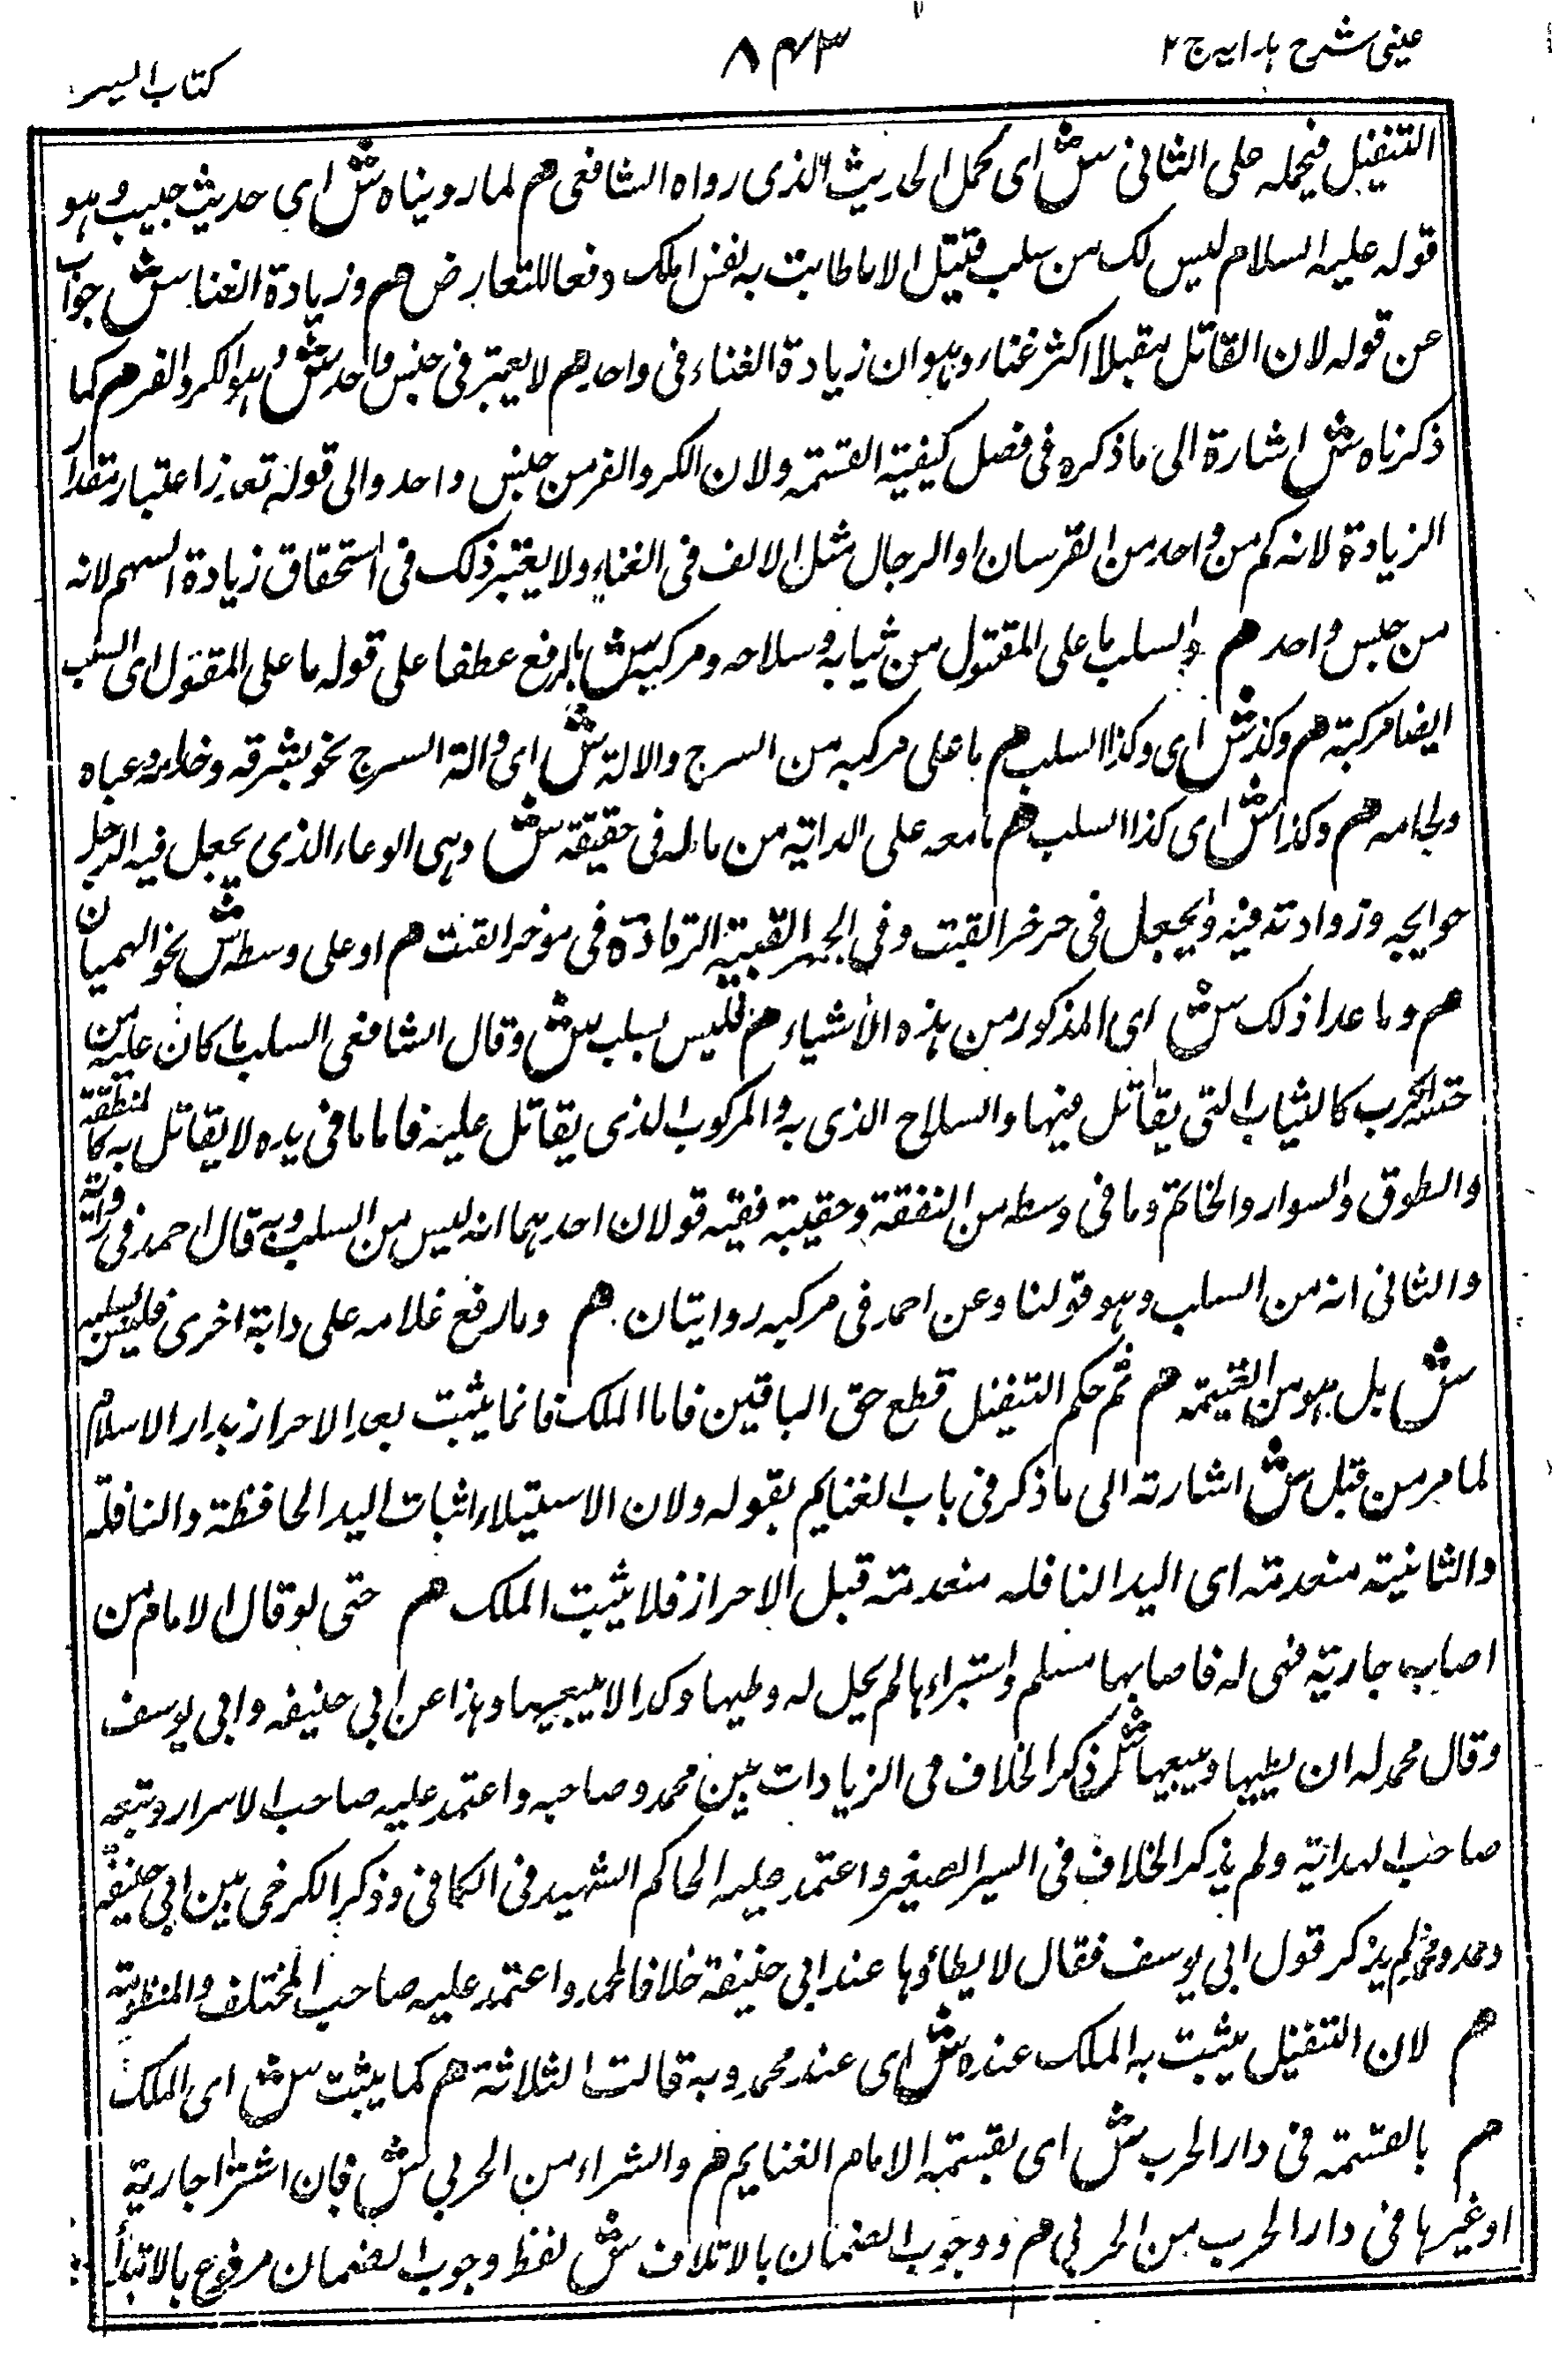 عینی شرح ہدایہ ج ۲
۸۴۳
کتاب السیر
التنفيل فيحمله على الثانى ش اى يحمل الحديث الذى رواه الشافعى هم لما رويناه ش اى حديث حبيب وهو
قوله عليه السلام ليس لك من سلب قتيل الا ما طابت به نفس امامك دفعا للتعارض هم وزيادة الغناء ش جواب
عن قوله لان القاتل مقبلا اكثر غناء وهو ان زيادة الغناء فى واحد هم لا يعتبر فى جنس واحد ش وهو الكر والفر هم كما
ذكرناه ش اشارة الى ما ذكره فى فصل كيفية القسمة ولان الكر والفر من جنس واحد والى قوله تعذر اعتبار مقدار
الزيادة لانه كم من واحد من الفرسان او الرجال مثل الالف فى الغناء ولا يعتبر ذلك فى استحقاق زيادة السهم لانه
من جنس واحد هم والسلب ما على المقتول من ثيابه وسلاحه ومركبه ش بالرفع عطفا على قوله ما على المقتول اى السلب
ايضا مركبة هم وكذا ش اى وكذا السلب هم ما على مركبه من السرج والالة ش اى والة السرج نحو وعباه
ولجامه هم وكذا ش اى كذا السلب هم ما معه على الدابة من ماله فى حقيقة ش وهى الوعاء الذى يجعل فيه الرجل
حوايجه وزوادته فيه ويجعل فى القتب وفى الرفادة فى موخر القتب هم او على وسطه ش نحو الهميان
هم وما عدا ذلك ش اى المذكور من هذه الاشياء هم فليس بسلب ش وقال الشافعى السلب ما كان عليه من
الحرب كالثياب التى يقاتل فيها والسلاح الذى به والمركوب الذى يقاتل عليه فاما ما فى يده لا يقاتل به كالمنطقة
والطوق والسوار والخاتم وما فى وسطه من النفقة وحقيبة ففيه قولان احدهما انه ليس من السلب وبه قال احمد فى رواية
والثانى انه من السلب وهو قولنا وعن احمد فى مركبه روايتان هم وما رفع غلامه على دابة اخرى فليس بسلبه
ش بل هو من الغنيمة هم ثم حكم التنفيل قطع حق الباقين فاما الملك فانما يثبت بعد الاحراز بدار الاسلام
لما مر من قبل ش اشارة الى ما ذكر فى باب الغنايم بقوله ولان الاستيلاء اثبات اليد الحافظة والناقلة
والثانية منعدمة اى اليد الناقله منعدمة قبل الاحراز فلا يثبت الملك هم حتى لو قال الامام من
اصاب جارية فهى له فاصابها مسلم واستبراءها لم يحل له وطيها وكذا لا يبيعها وهذا عن ابى حنيفه وابى يوسف
وقال محمد له ان يطيها ويبيعها ش ذكر الخلاف فى الزيادات بين محمد وصاحبه واعتمد عليه صاحب الاسرار وتبعه
صاحب الهداية ولم يذكر الخلاف فى السير الصغير واعتمد عليه الحاكم الشهيد فى الكافى وذكر الكرخى بين ابى حنيفة
ومحمد ولم يذكر قول ابى يوسف فقال لا يطاؤها عند ابى حنيفة خلافا لمحمد واعتمد عليه صاحب المختلف والمنظومة
هم لان التنفيل يثبت به الملك عنده ش اى عند محمد وبه قالت الثلاثة هم كما يثبت ش اى الملك
هم بالقسمة فى دار الحرب ش اى بقسمة الامام الغنايم هم والشراء من الحربى ش فان اشترا جارية
او غيرها فى دار الحرب من الحربى هم ووجوب الضمان بالاتلاف ش لفظ وجوب الضمان مرفوع بالابتدا